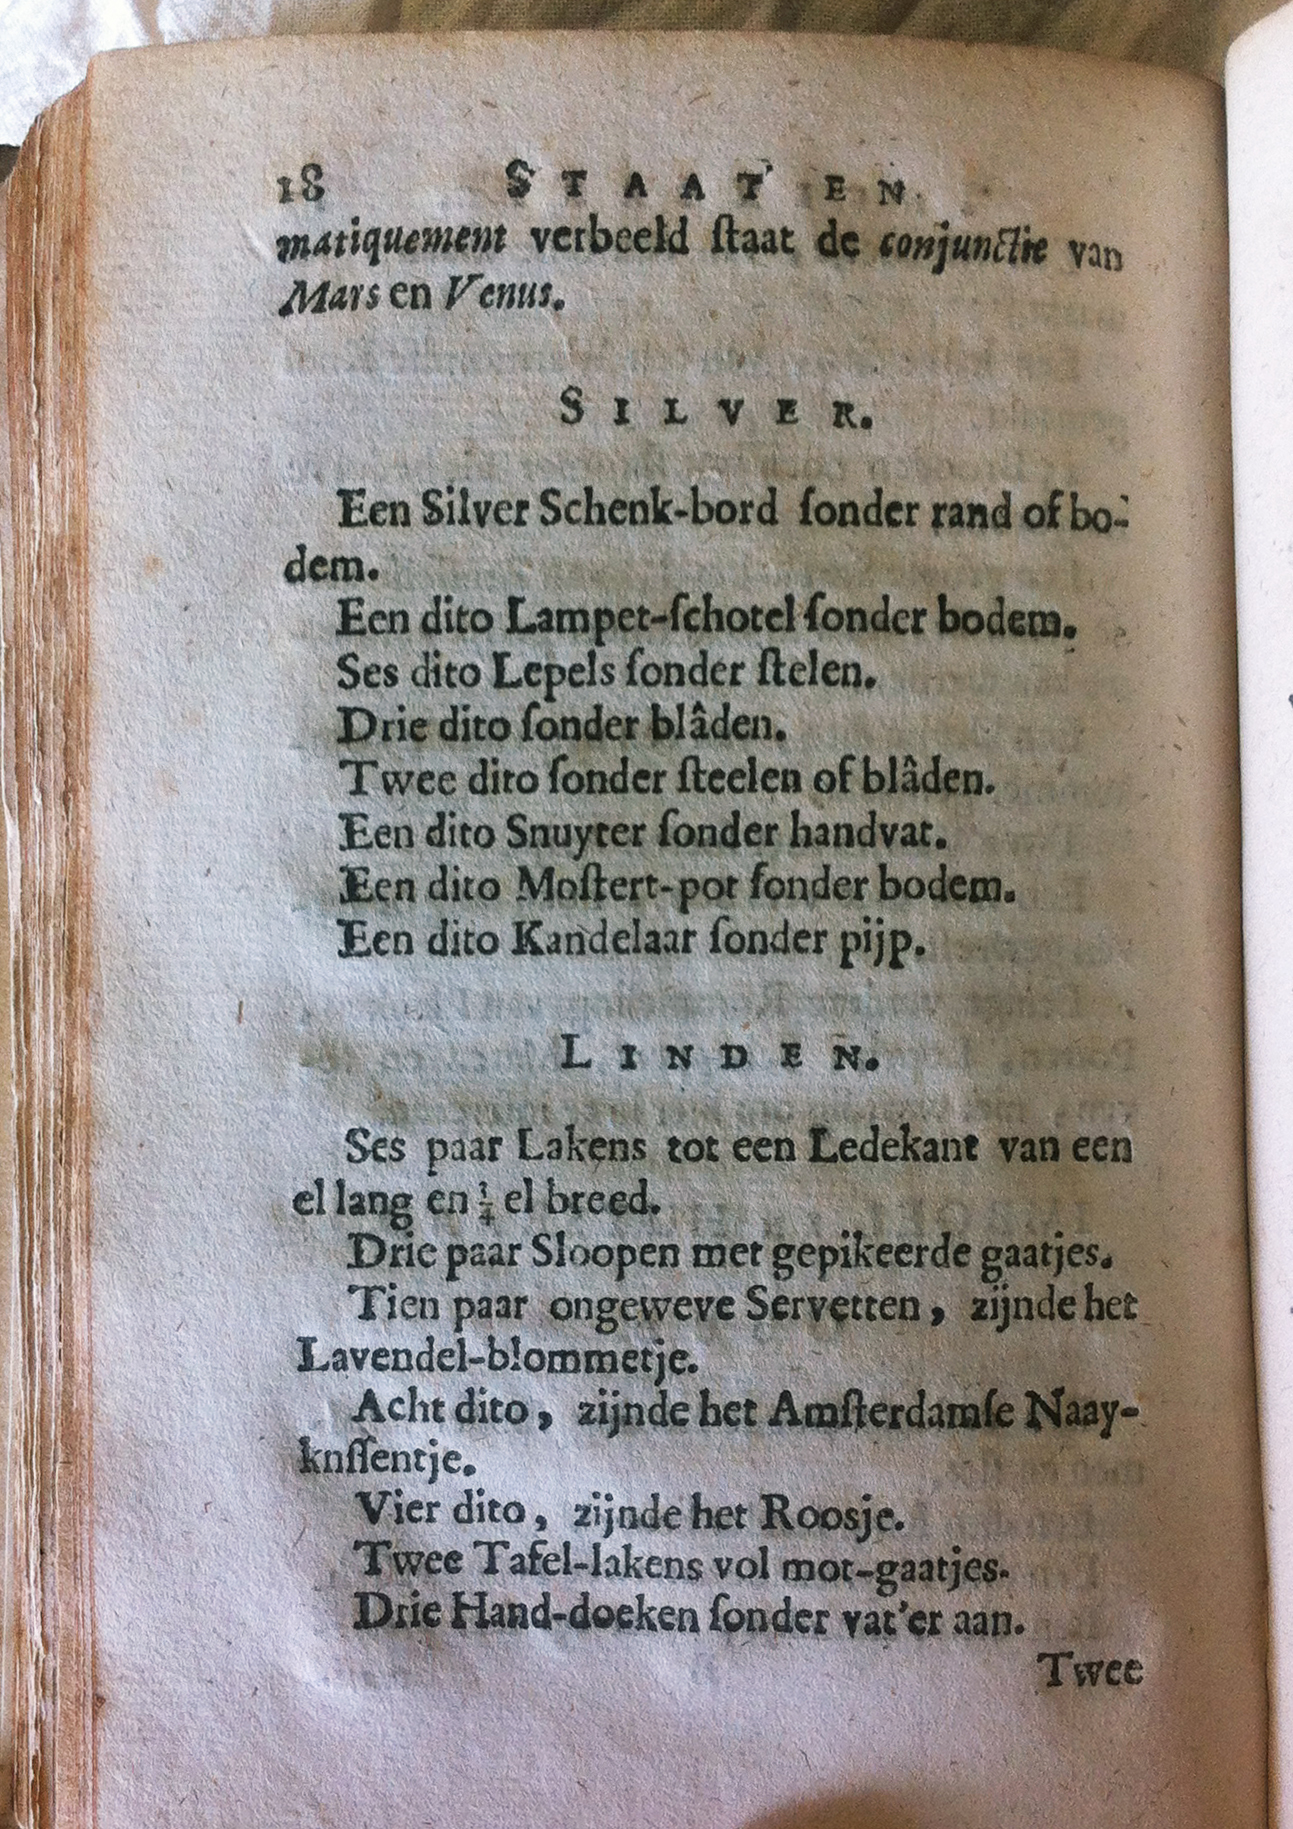 18 STAAT EN
matiquement verbeeld ſtaat de conjunctie van
Mars en Venus.
SILVER.
Een Silver Schenk-bord ſonder rand of bo-
dem.
Een dito Lampet-ſchotel ſonder bodem.
Ses dito Lepels ſonder ſtelen.
Drie dito ſonder blâden.
Twee dito ſonder ſteelen of blâden.
Een dito Snuyter ſonder handvat.
Een dito Moſtert-pot ſonder bodem.
Een dito Kandelaar ſonder pijp.
LINDEN.
Ses paar Lakens tot een Ledekant van een
el lang en ¼ el breed.
Drie paar Sloopen met gepikeerde gaatjes.
Tien paar ongeweve Servetten, zijnde het
Lavendel-blommetje.
Acht dito, zijnde het Amſterdamſe Naay-
knſſentje.
Vier dito, zijnde het Roosje.
Twee Tafel-lakens vol mot-gaatjes.
Drie Hand-doeken ſonder vat'er aan.
Twee